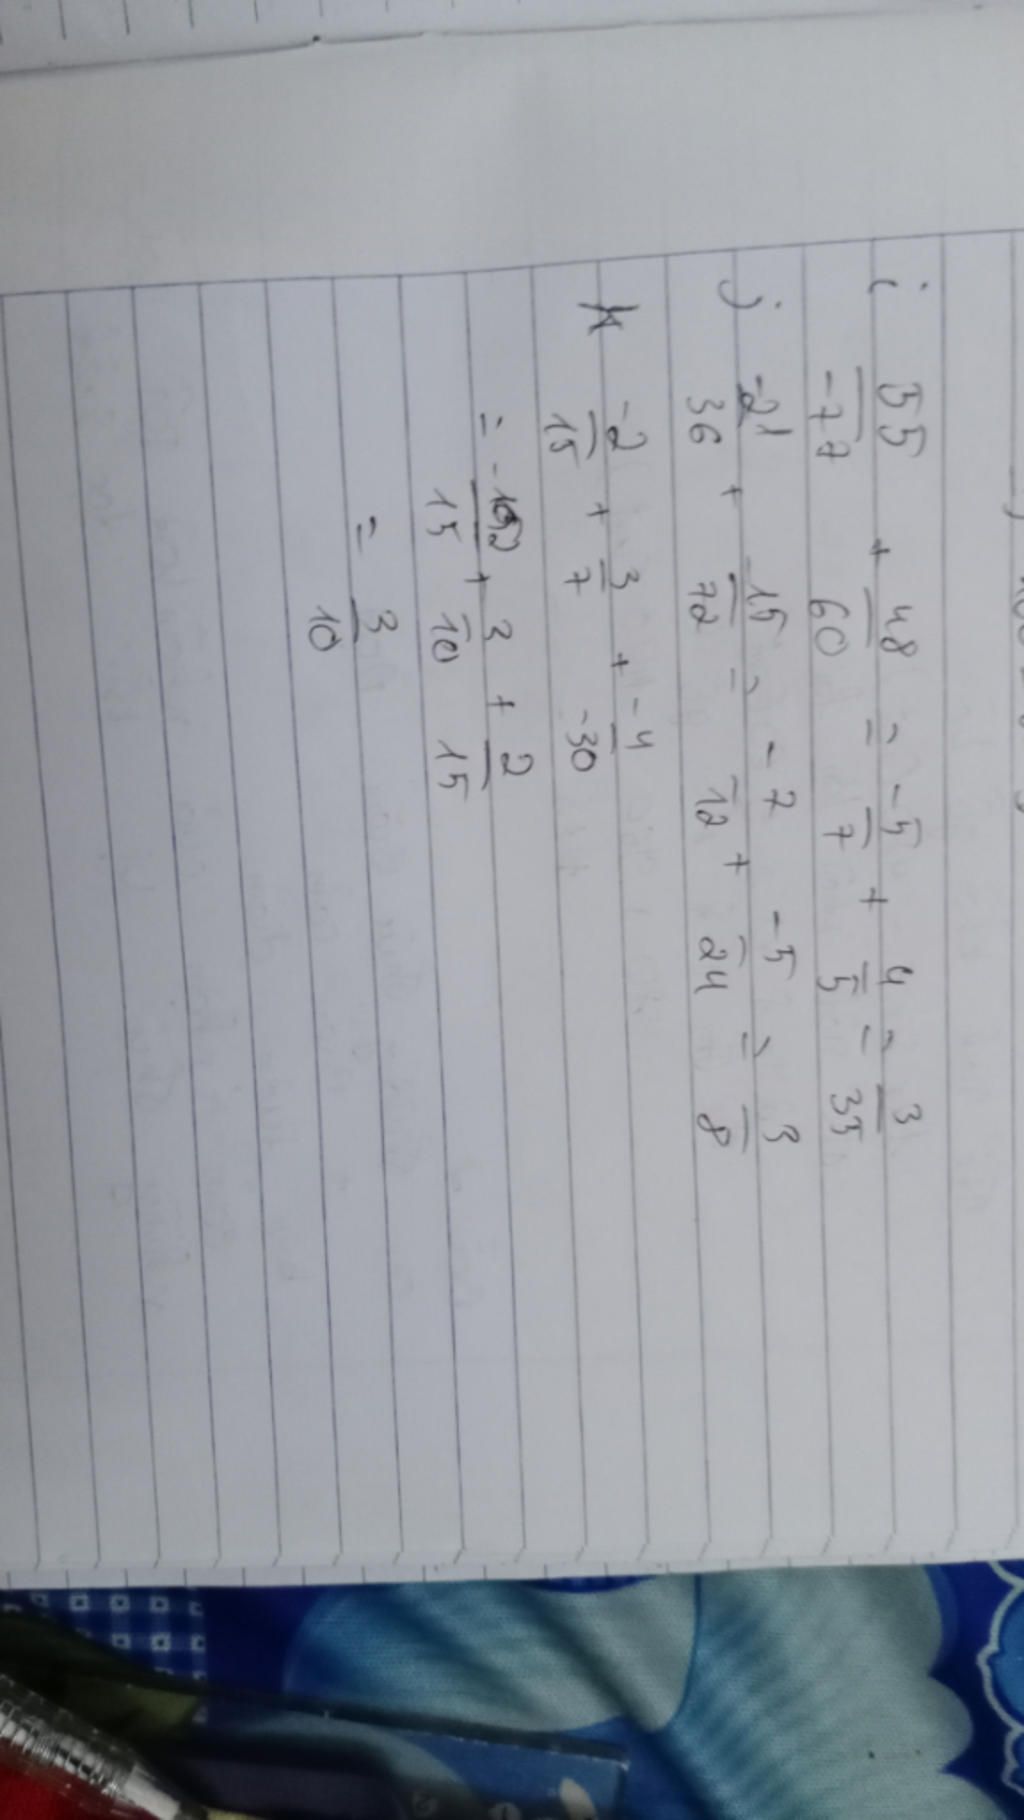 i 55/-77 + 48/60 = -5/7 + 4/5 = 3/35
j -21/36 + 15/72 = -7/12 + -5/24 = 3/8
k -2/15 + 3/7 + -4/-30
= /15 + 3/10 + 2/15
= 3/10